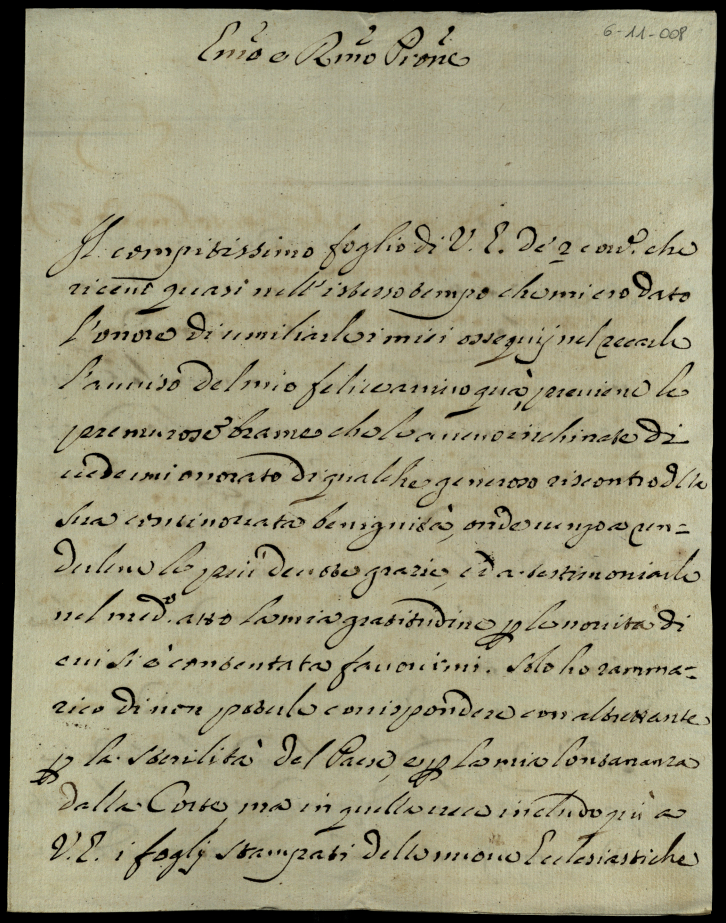 6-11-008
Emo e Rmo Prone
Il compitissimo foglio di V. E. de' 2 corr.e che
ricevei quasi nell' istesso tempo che mi ero dato
l'onore di umiliarle i miei ossequij nel recarle
l'avviso del mio felice arrivo quà, previene le
premurose brame che le avevo inchinate di
vedermi onorato di qualche generoso riscontro della
sua continovata benignità, onde vengo a ren=
derlene le più devote grazie, ed a testimoniarle
nel med.o atto la mia gratitudine p le novità di
cui si è contentata favorirmi. Solo ho ramma=
rico di non poterle corrispondere con altrettante
p la sterilità del Paese, e p la mia lontananza
dalla Corte, ma in quella vece includo quì a
V. E. i foglj stampati delle nuove Ecclesiastiche